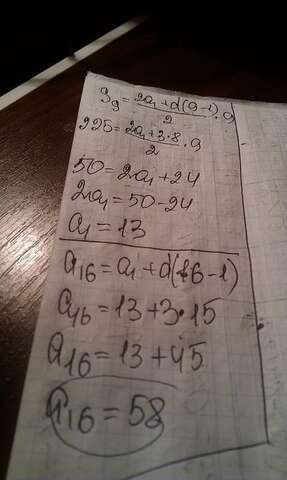 S₉ = (2a₁ + d(9-1))/2 · 9
225 = (2a₁ + 3·8)/2 · 9
50 = 2a₁ + 24
2a₁ = 50 - 24
a₁ = 13
a₁₆ = a₁ + d(16-1)
a₁₆ = 13 + 3·15
a₁₆ = 13 + 45
a₁₆ = 58